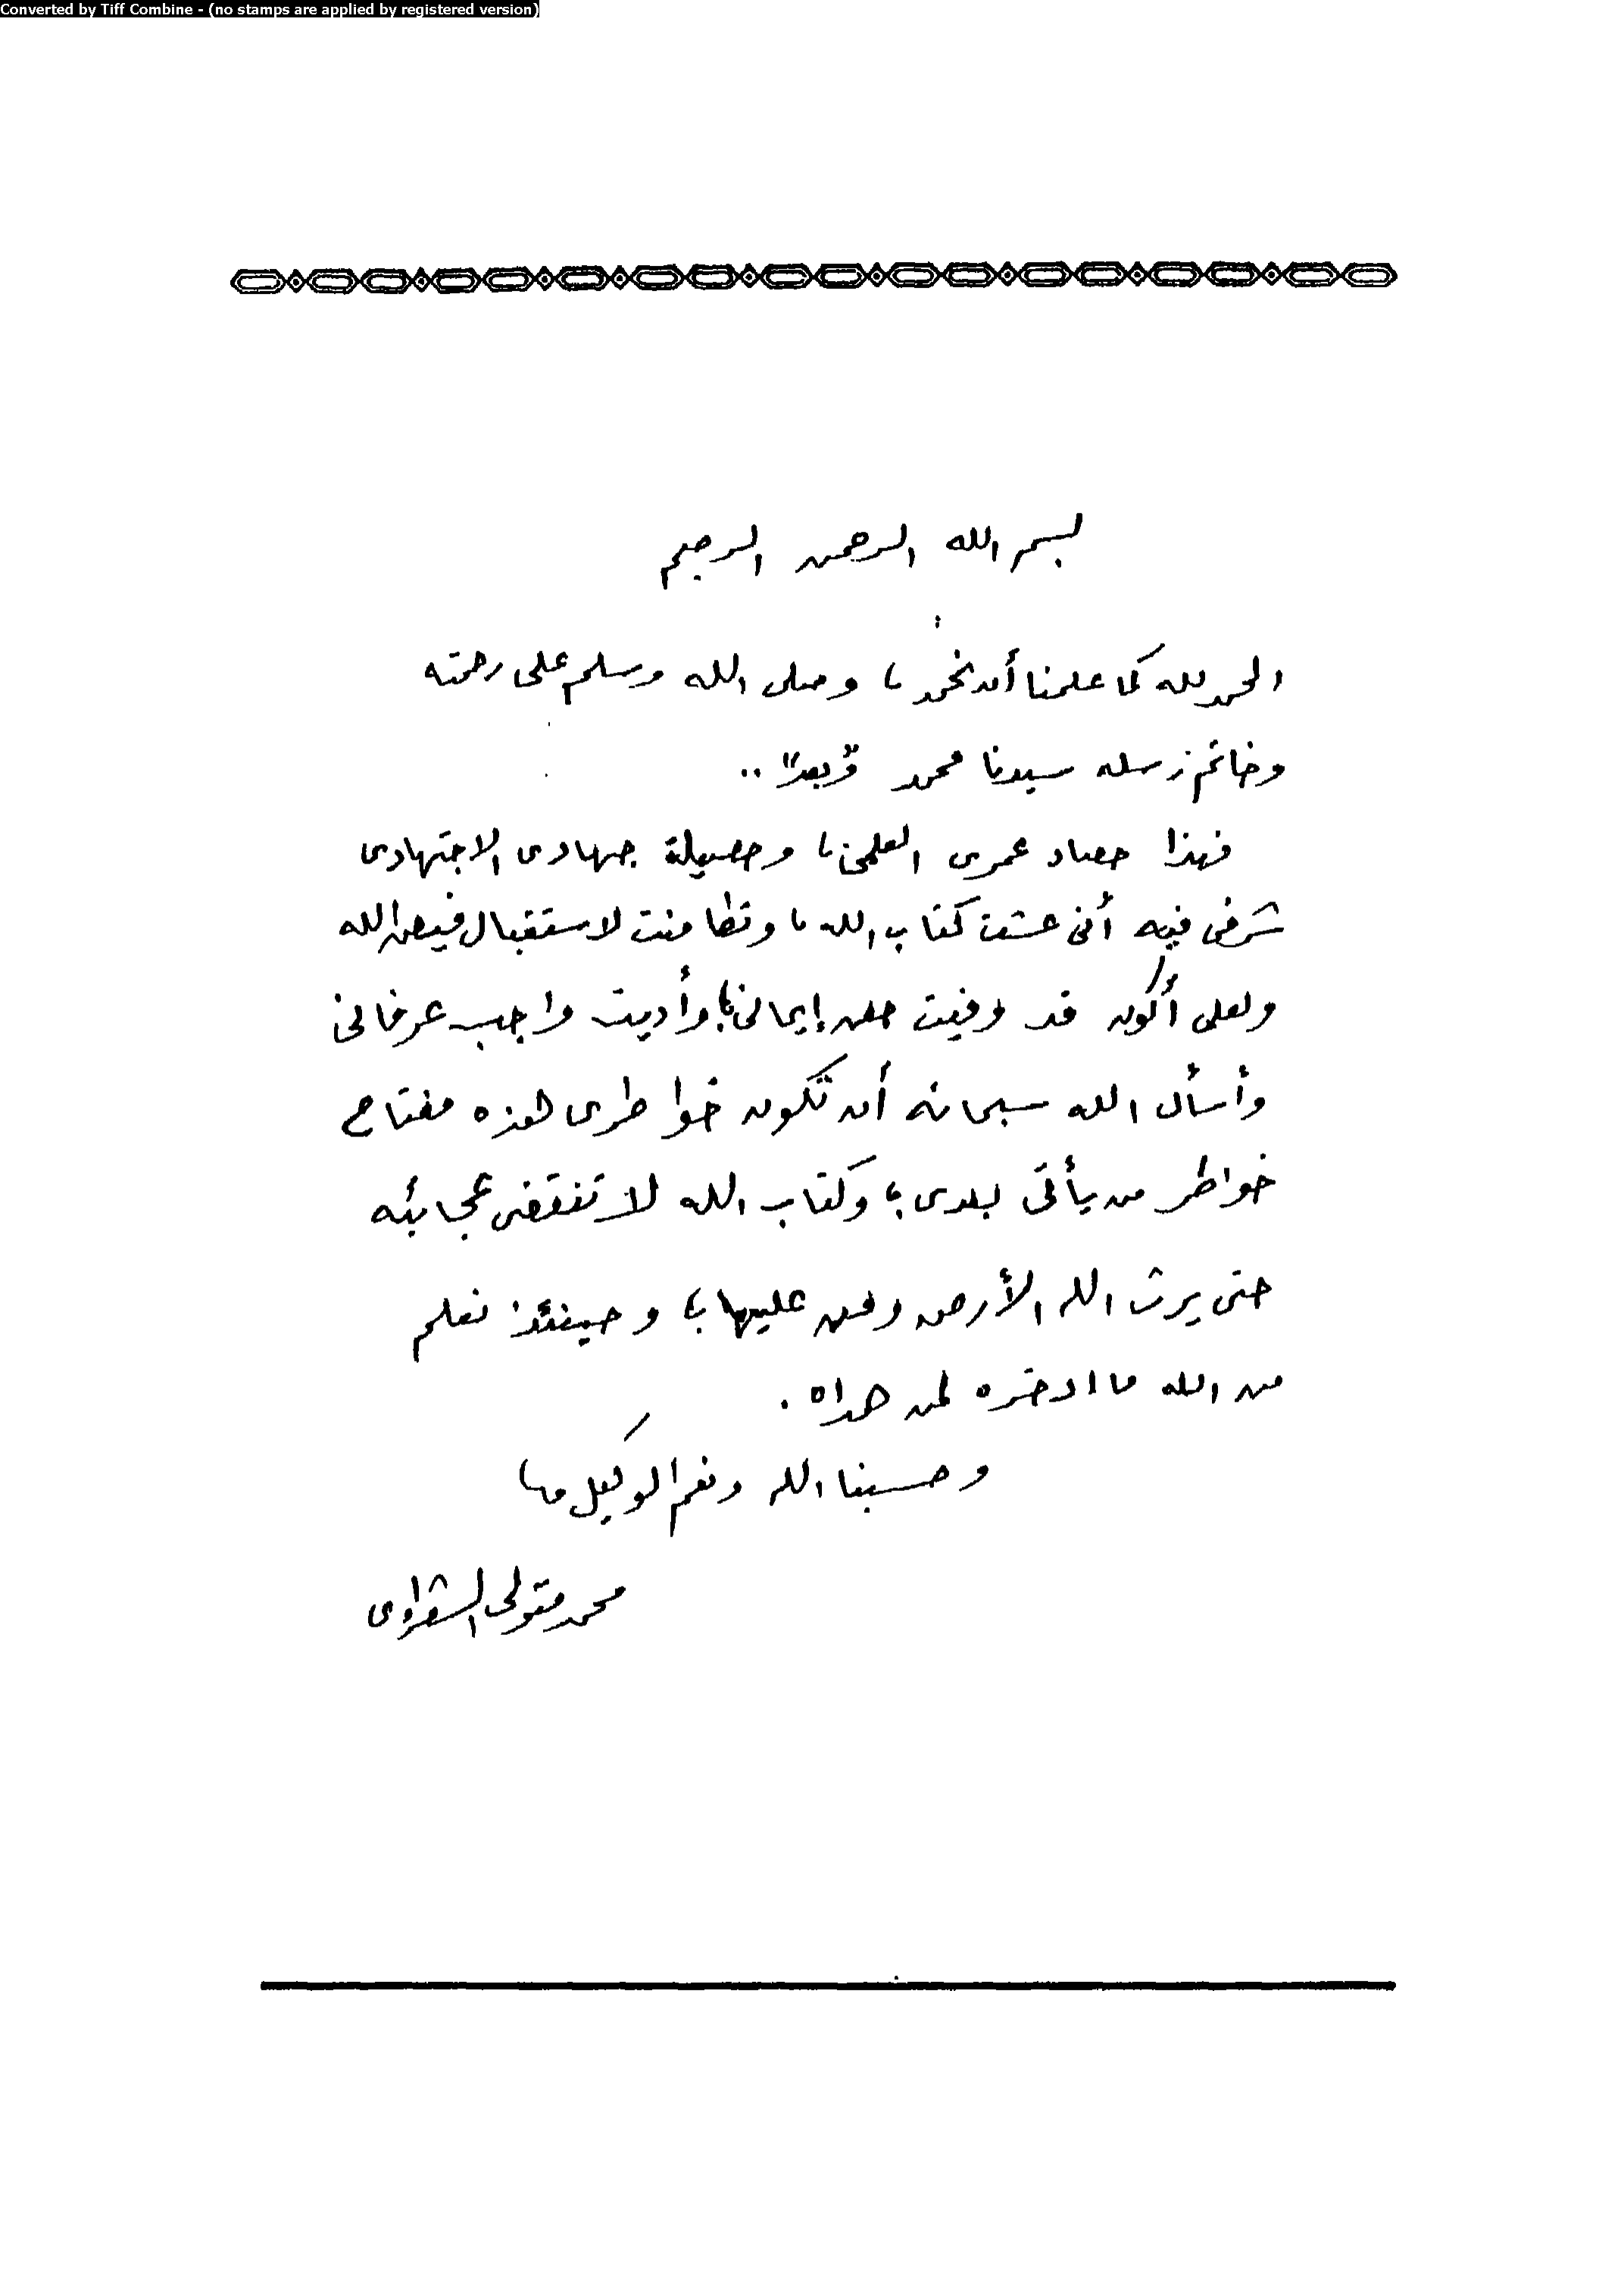 Converted by Tiff Combine - (no stamps are applied by registered version)
بسم الله الرحمن الرحيم
الحمد لله كما علمنا أن نحمد ، وصلى الله وسلم على رحمته
وخاتم رسله سيدنا محمد وبعد ..
فهذا حصاد عمرى العلمى ، وحصيلة جهادى الاجتهادى
شرفى فيه أنى عشت كتاب الله ، وتطامنت لاستقبال فيض الله
ولعلى أكون قد وفيت حق إيمانى ، وأديت واجب عرفانى
وأسأل الله سبحانه أن تكون خواطرى هذه مفتاح
خواطر من يأتى بعدى ، وكتاب الله لا تنقضى عجائبه
حتى يرث الله الأرض ومن عليها ، وحينئذ نعلم
من الله ما ادخره لمن هداه .
وحسبنا الله ونعم الوكيل
محمد متولى الشعراوى